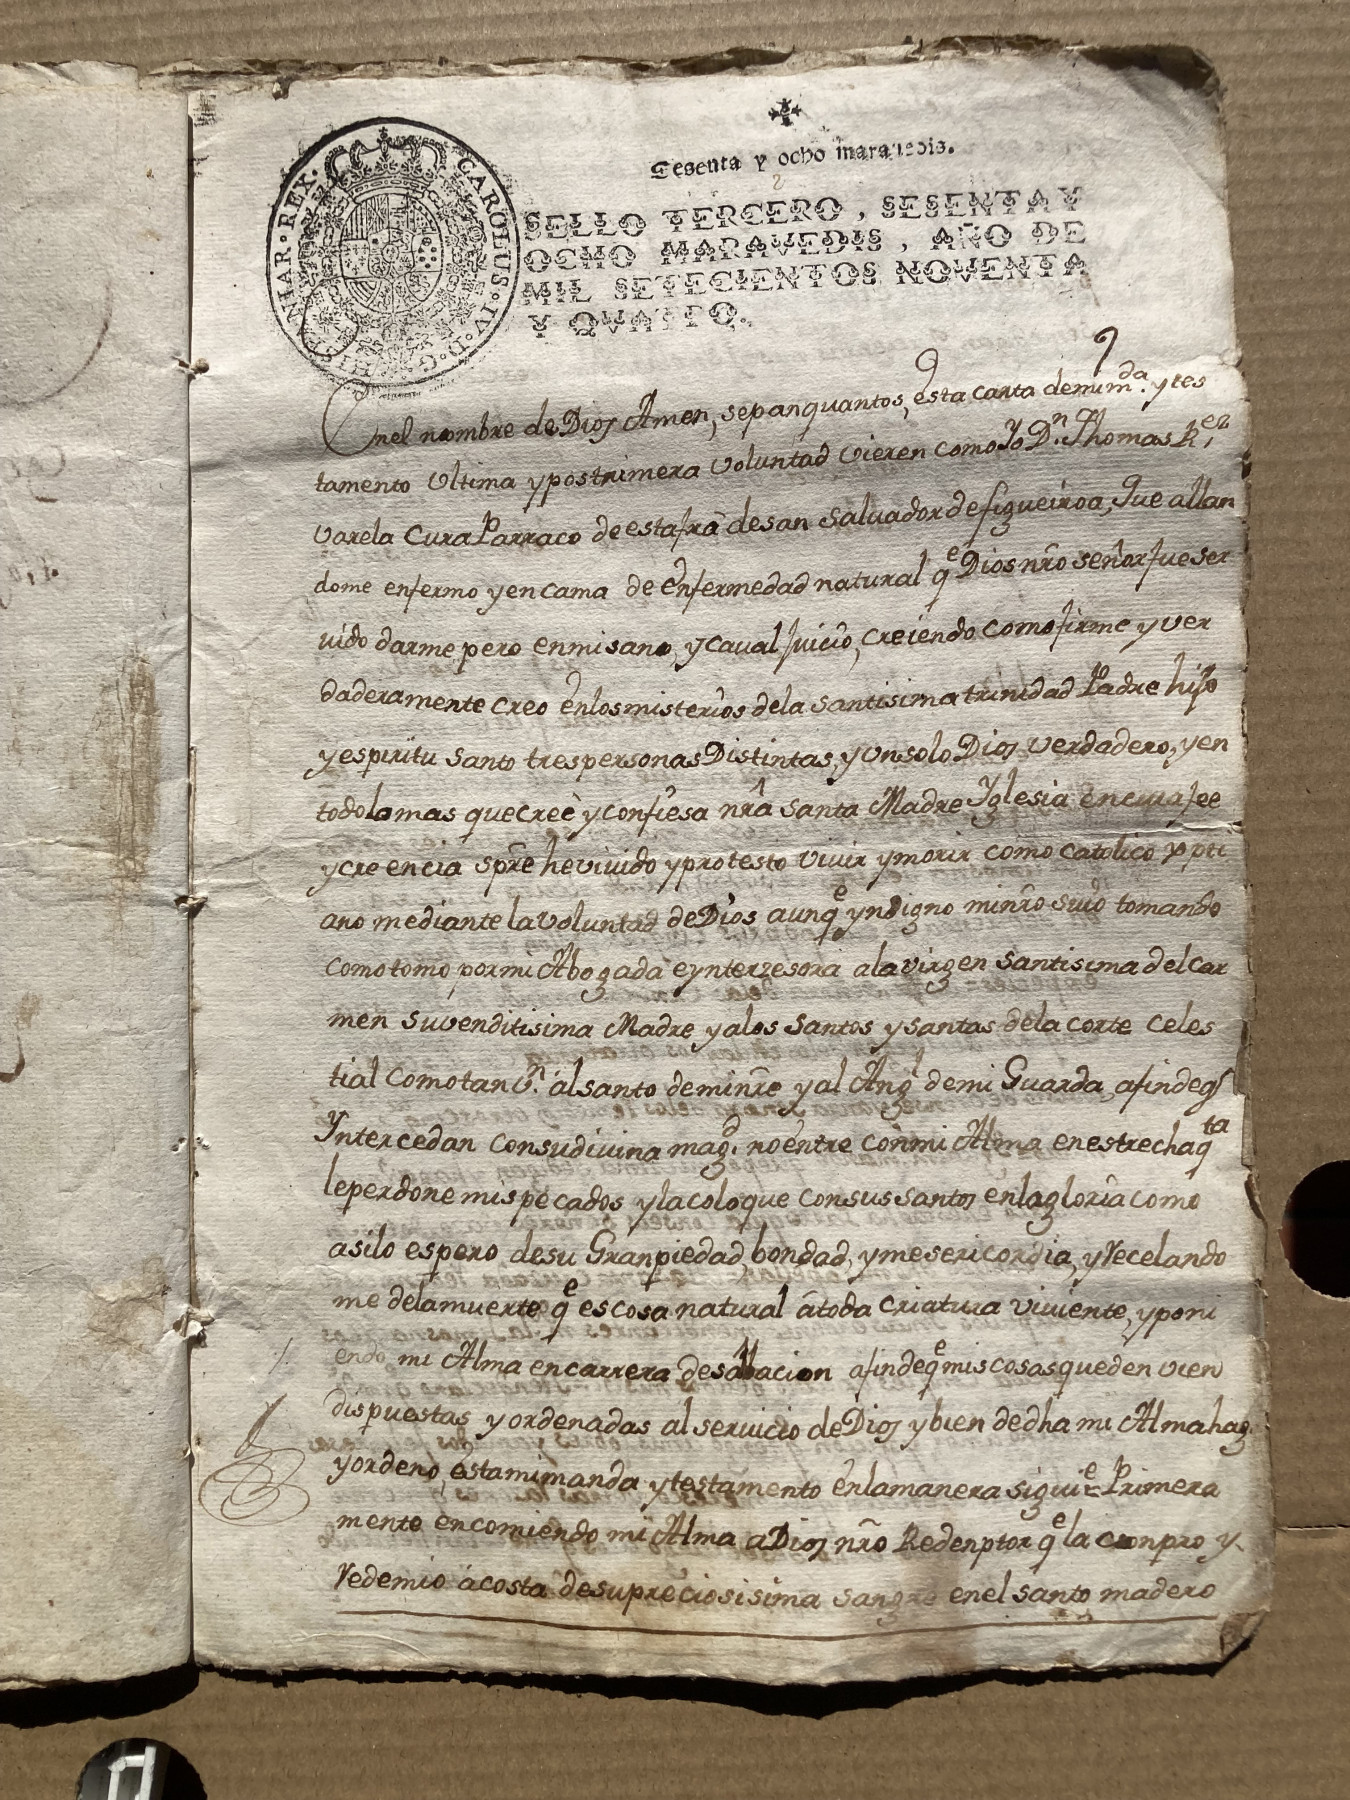 Sesenta y ocho maravedis.
SELLO TERCERO, SESENTA Y
OCHO MARAVEDIS, AÑO DE
MIL SETECIENTOS NOVENTA
Y QVATRO.
CAROLUS·IV·D·G·HISPANIAR·REX·
Enel nombre de Dios Amen, sepan quantos, esta carta demimda. ytes
tamento Ultima ypostrimera Voluntad vieren como Yo Dn. Thomas Rez
varela Cura Parraco de estafrã desan Salvador defigueiroa, Que allan
dome enfermo yen cama de enfermedad natural qe Dios nr̃o señor fue ser
vido darme, pero enmi sano, y caval Juicio, creiendo como firme y ver
daderamente creo enlos misterios dela Santisima trinidad Padre hijo
yespiritu Santo tres personas Distintas, y Un solo Dios verdadero, y en
todo lo mas que creè y confiesa nrâ Santa Madre Yglesia en cuia fee
y cre encia sp̃re he vivido y protesto vivir y morir como catolico xpti
ano mediante la Voluntad de Dios aunqe yndigno minr̃o suio tomando
como tomo por mi Abogada e ynterzesora a la virgen Santisima del Car
men su venditisima Madre, y a los Santos y santas de la corte Celes
tial como tanvn. al santo de minr̃e y al Angl de mi Guarda, afin de q̃
Yntercedan con su divina magd. no entre con mi Alma en estrecha qta
le perdone mis pecados y la coloque con sus santos en la gloria como
asilo espero de su Gran piedad, bondad, y mesericordia, y Recelando
me de la muerte qe es cosa natural à toda criatura viviente, y poni
endo mi Alma en carrera de salbacion afin de qe mis cosas queden vien
dispuestas y ordenadas al servicio de Dios y bien de dha mi Alma hago
y ordeno, esta mi manda y testamento en la manera siguie Primera
mente encomiendo mi Alma a Dios nr̃o Redenptor qe la conpro y
Redemio à costa de su preciosisima sangre en el santo madero